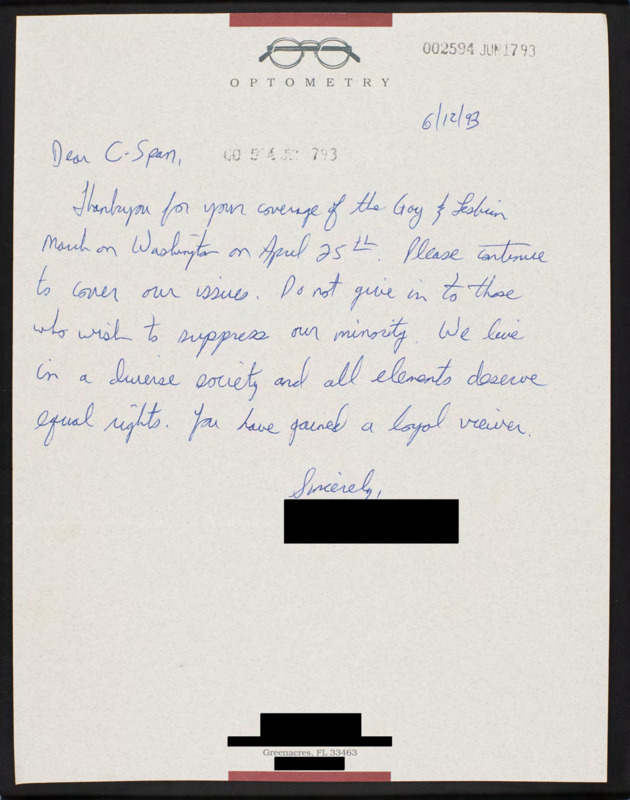 002594 JUN1793
OPTOMETRY
6/12/93
Dear C-Span,
Thankyou for your coverage of the Gay & Lesbian
March on Washington on April 25th. Please continue
to cover our issues. Do not give in to those
who wish to suppress our minority. We live
in a diverse society and all elements deserve
equal rights. You have gained a loyal viewer.
Sincerely,
Greenacres, FL 33463